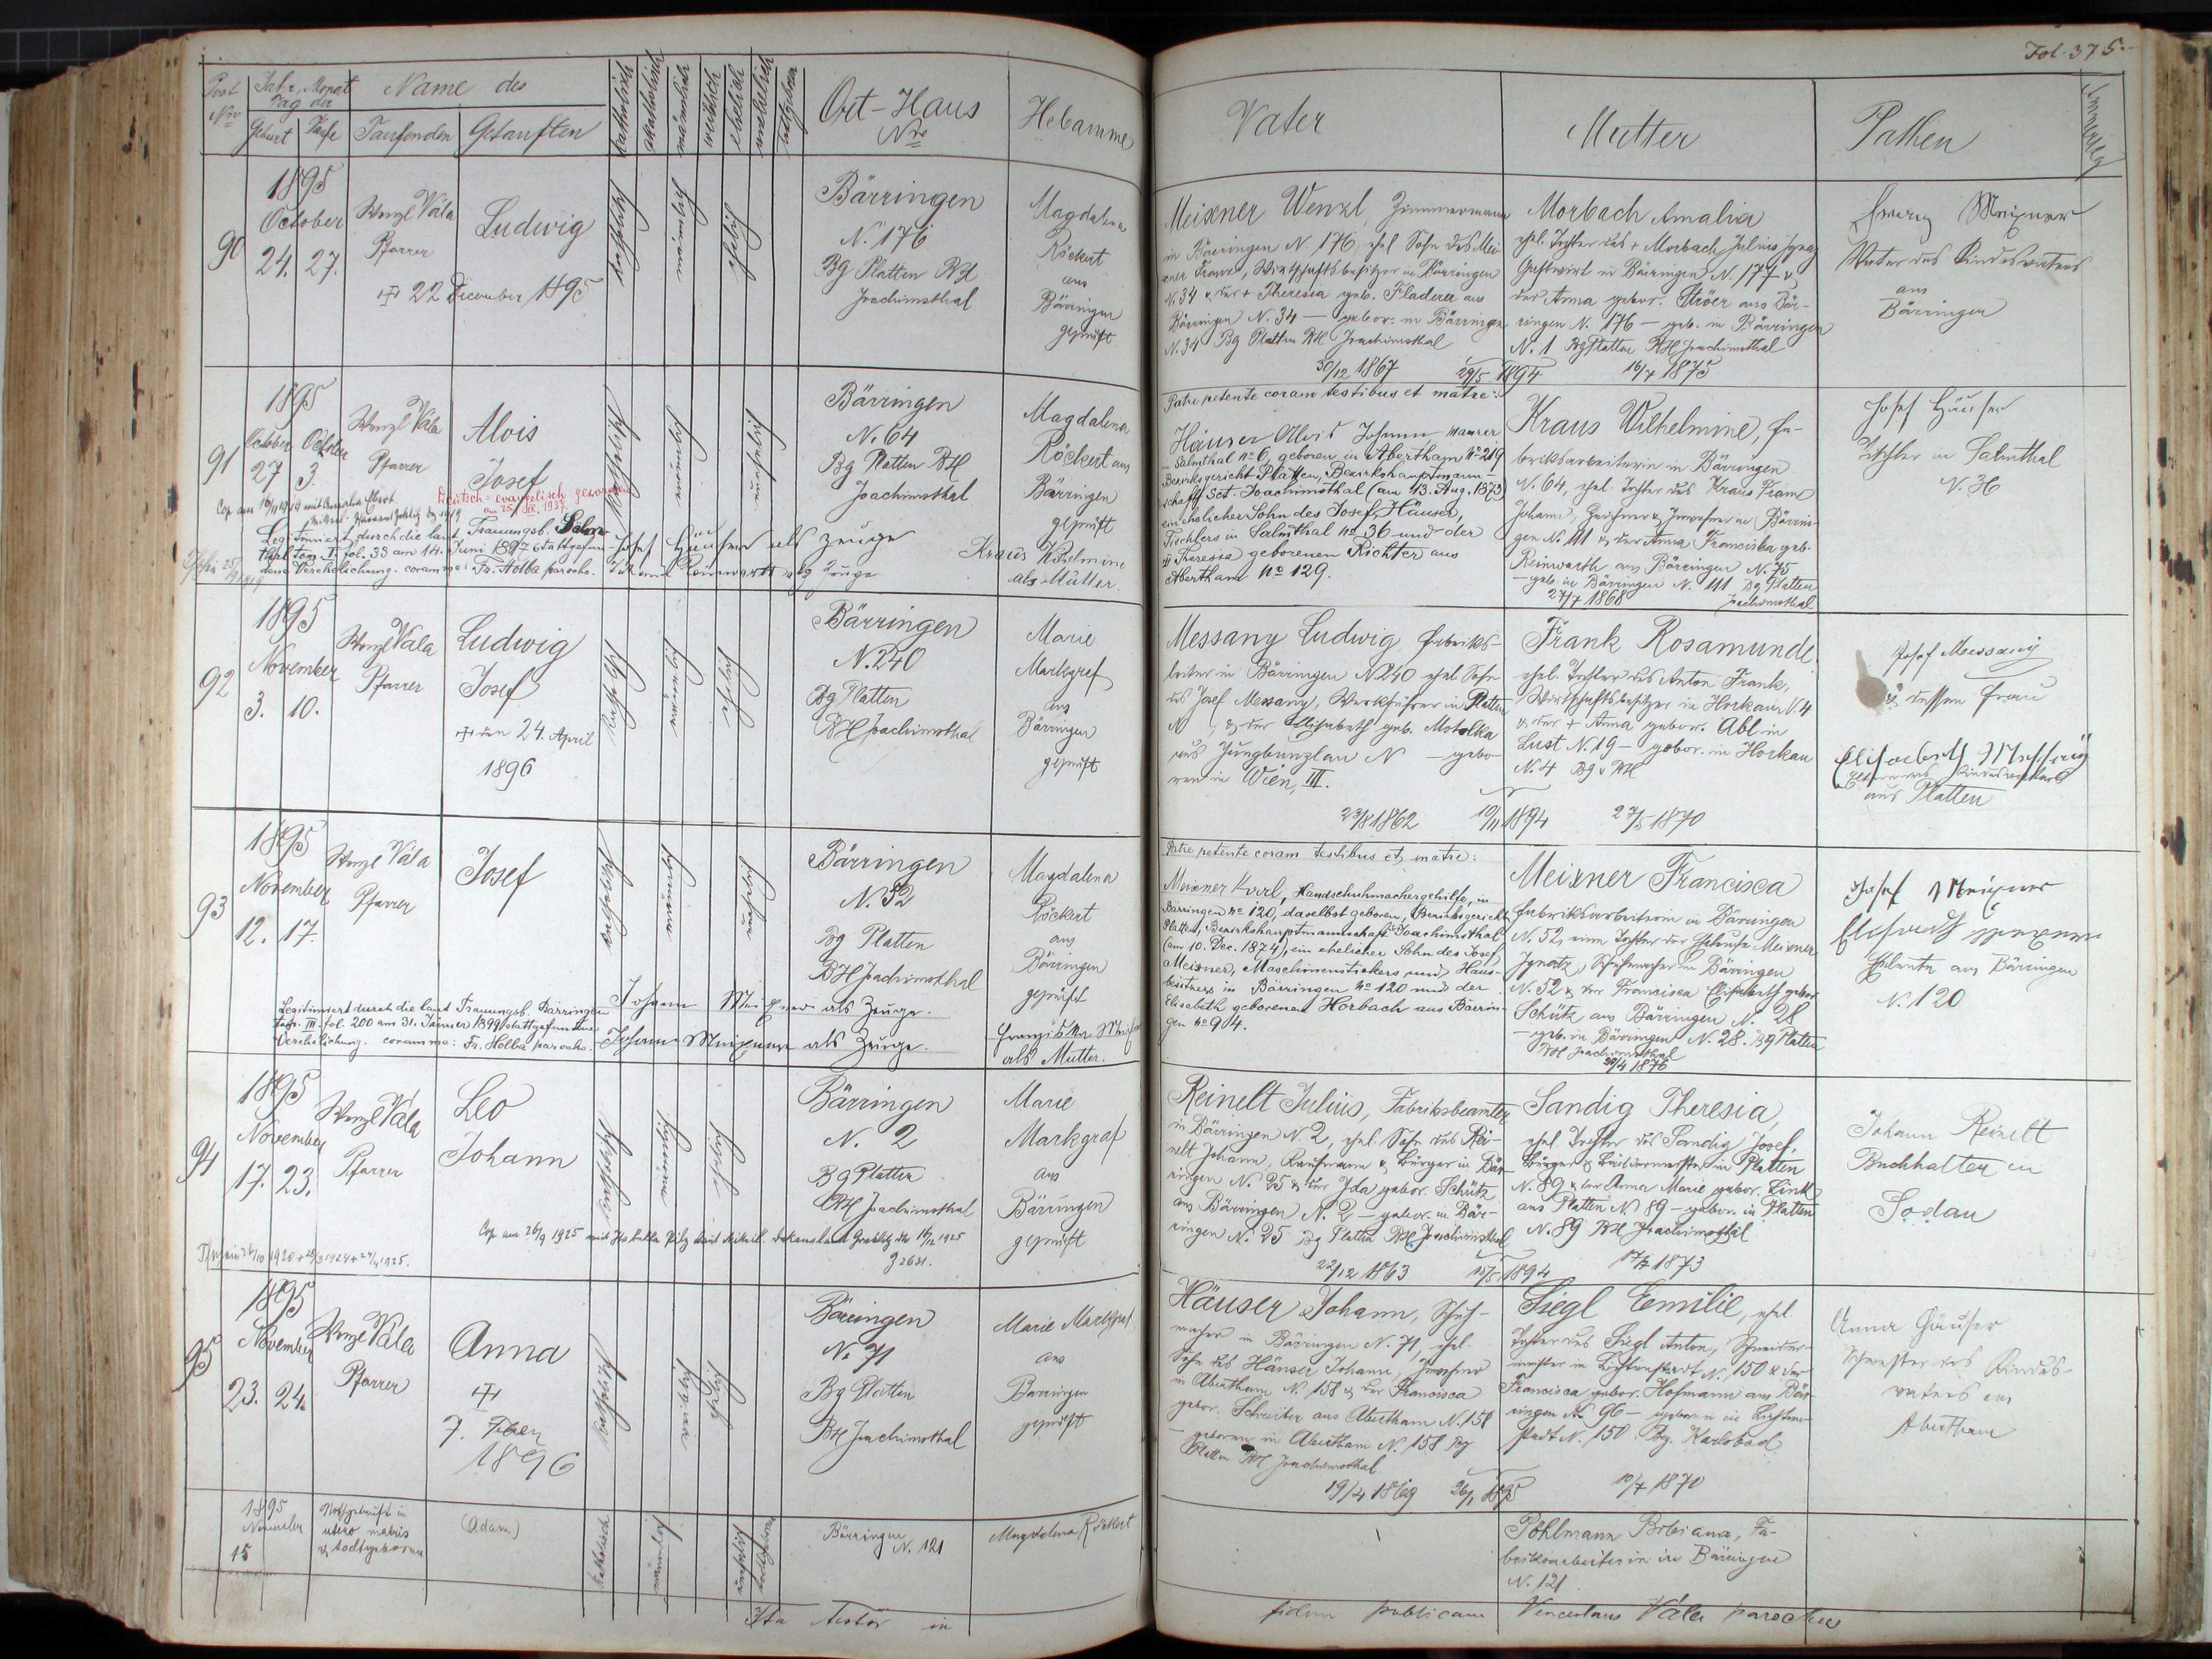 Fol. 375.
Post Nro
Jahr, Monat
Tag der
Geburt Taufe
Name des
Taufenden Getauften
katholisch
akatholisch
männlich
weiblich
ehelich
unehelich
todtgeboren
Ort-Haus
Nro
Hebamme
Vater
Mutter
Pathen
Anmerkung
90
1895
October
24. 27.
Wenzl Vála
Pfarrer
Ludwig
22 December 1895
katholisch
männlich
ehelich
Bärringen
N. 176
Bg Platten BH
Joachimsthal
Magdalena
Röckert
aus
Bärringen
geprüft
Meixner Wenzl, Zimmermann
in Bärringen N. 176, ehel. Sohn des Mei-
xner Franz, Wirtschaftsbesitzer in Bärringen
N. 34 & der + Theresia geb. Fladerer aus
Bärringen N. 34 — gebor. in Bärringen
N. 34 Bg Platten BH Joachimsthal
30/12 1867
29/5 1894
Morbach Amalia
ehel. Tochter des + Morbach Julius Ignaz
Gastwirt in Bärringen N. 177 &
der Anna gebor. Ströer aus Bär-
ringen N. 176 — geb. in Bärringen
N. 1 Bg Platten BH Joachimsthal
16/7 1875
Franz Meixner
Vater des Kindesvaters
aus
Bärringen
91
1895
October October
27 3.
Wenzl Vála
Pfarrer
Alois
Josef
Deutsch-evangelisch geworden
am 25. IX. 1937.
Legitimiert durch die laut Trauungsb. Salm-
thal tom. I. fol. 33 am 14. Juni 1897 stattgefun-
dene Verehelichung. coram me: Fr. Holba parocho.
katholisch
männlich
unehelich
Josef Häuser als Zeuge
als Zeuge
Kraus Wilhelmine
als Mutter.
Bärringen
N. 64
Bg Platten BH
Joachimsthal
Magdalena
Röckert aus
Bärringen
geprüft
Patre petente coram testibus et matre:
Häuser Alois Johann Maurer
in Salmthal No 6, geboren in Abertham No 219
Bezirksgericht Platten, Bezirkshauptmann-
schaft Sct. Joachimsthal (am 13. Aug. 1873)
ein ehelicher Sohn des Josef Häuser,
Tischlers in Salmthal No 36 und der
Theresia geborenen Richter aus
Abertham No 129.
Kraus Wilhelmine, Fa-
briksarbeiterin in Bärringen
N. 64, ehel. Tochter des Kraus Franz
Johann, & Inwohner in Bärrin-
gen N. 111 & der Anna Franciska geb.
Reinwarth aus Bärringen N. 75
— geb. in Bärringen N. 111 Bg Platten
27/7 1868 Joachimsthal
Josef Häuser
Tischler in Salmthal
N. 36
92
1895
November
3. 10.
Wenzl Vála
Pfarrer
Ludwig
Josef
den 24. April
1896
katholisch
männlich
ehelich
Bärringen
N. 240
Bg Platten
BH Joachimsthal
Marie
Markgraf
aus
Bärringen
geprüft
Messany Ludwig, Fabriks-
leiter in Bärringen N 240 ehel. Sohn
des Josef Messany, Werkführer in Platten
N , & der Elisabeth geb. Motolka
aus Jungbunzlau N — gebo-
ren in Wien, III.
23/8 1862
19/11 1894
Frank Rosamunde
ehel. Tochter des Anton Frank,
Wirtschaftsbesitzer in Horkau N. 4
& der + Anna gebor. Abl in
Lust N. 19 — gebor. in Horkau
N. 4 Bg & BH
27/5 1870
Josef Messany
& dessen Frau
Elisabeth Messany
Eltern des Kindesvaters
aus Platten
93
1895
November
12. 17.
Wenzl Vála
Pfarrer
Josef
Legitimiert durch die laut Trauungsb. Bärringen
tom. III. fol. 200 am 31. Januar 1899 stattgefundene
Verehelichung. coram me: Fr. Holba parocho.
katholisch
männlich
unehelich
Johann Meixner als Zeuge.
Johann Meixner als Zeuge.
Franziska
als Mutter.
Bärringen
N. 52
Bg Platten
BH Joachimsthal
Magdalena
Röckert
aus
Bärringen
geprüft
Patre petente coram testibus et matre:
Meixner Karl, Handschuhmachergehilfe, in
Bärringen No 120, daselbst geboren, Bezirksgericht
Platten, Bezirkshauptmannschaft Joachimsthal
(am 10. Dec. 1874), ein ehelicher Sohn des Josef
Meixner, Maschinenstickers und Haus-
besitzers in Bärringen No 120 und der
Elisabeth geborenen Horbach aus Bärrin-
gen No 94.
Meixner Francisca
Fabriksarbeiterin in Bärringen
N. 52, eine Tochter der Eheleute Meixner
Ignatz, Schuhmacher in Bärringen
N. 52 & der Francisca Elisabeth gebor.
Schütz aus Bärringen N. 28
— geb. in Bärringen N. 28. Bg Platten
BH Joachimsthal
1876
Josef Meixner
Elisabeth Meixner
Eheleute aus Bärringen
N. 120
94
1895
November
17. 23.
Wenzl Vála
Pfarrer
Leo
Johann
Cop am 26/9 1925 mit Isabella Pilz
katholisch
männlich
ehelich
Bärringen
N. 2
Bg Platten
BH Joachimsthal
Marie
Markgraf
aus
Bärringen
geprüft
Reinelt Julius, Fabriksbeamter
in Bärringen N. 2, ehel. Sohn des Rei-
nelt Johann, Kaufmann & Bürger in Bär-
ringen N. 25 & der Ida gebor. Schütz
aus Bärringen N. 2 — gebor. in Bär-
ringen N. 25 Bg Platten BH Joachimsthal
22/12 1863
15/5 1894
Sandig Theresia,
ehel. Tochter des Sandig Josef,
Bürger & in Platten
N. 89 & der Anna Marie gebor. Zink
aus Platten N 89 — gebor. in Platten
N. 89 BH Joachimsthal
1873
Johann Reinelt
Buchhalter in
Sodau
95
1895
November
23. 24.
Wenzl Vála
Pfarrer
Anna
7.
1896
katholisch
weiblich
ehelich
Bärringen
No 71
Bg Platten
BH Joachimsthal
Marie Markgraf
aus
Bärringen
geprüft
Häuser Johann, Schuh-
macher in Bärringen N. 71, ehel.
Sohn des Häuser Johann, Inwohner
in Abertham N. 158 & der Francisca
gebor. Schreiber aus Abertham N. 158
— geboren in Abertham N. 158 Bg
Platten BH Joachimsthal
19/4 1869
26/1 1895
Siegl Emilie, ehel.
Tochter des Siegl Anton, Schneider-
meister in Lichtenstadt N. 150 & der
Francisca gebor. Hofmann aus Bär-
ringen No 96 — geboren in Lichten-
stadt N. 150 Bg. Karlsbad
10/7 1870
Anna Häuser
Schwester des Kindes-
vaters aus
Abertham
1895
November
15
Nothgetauft in
utero matris
& todtgeboren
(Adam)
katholisch
männlich
unehelich
todtgeboren
Bärringen
N. 121
Magdalena Röckert
Pöhlmann Bibiana, Fa-
briksarbeiterin in Bärringen
N. 121
Ita testor in fidem publicam Venceslaus Vála parochus